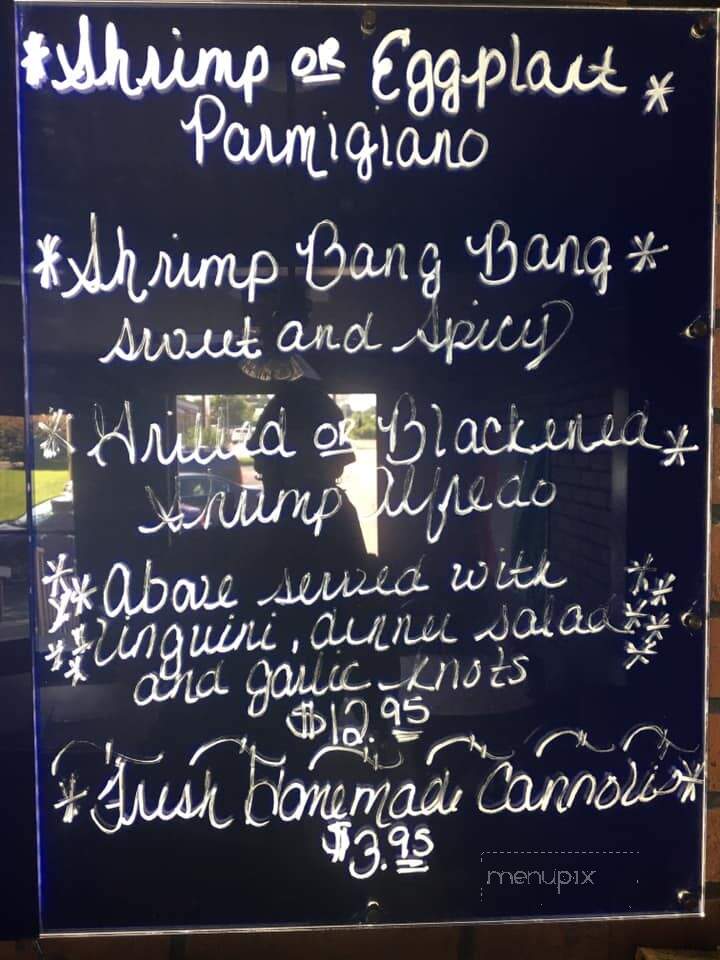 *Shrimp OR Eggplant*
Parmigiano
*Shrimp Bang Bang*
sweet and spicy
*Grilled OR Blackened*
Shrimp Alfredo
**Above served with**
**linguini, dinner salad**
and garlic knots
$12.95
*Fresh Homemade Cannolis*
$3.95
menupix